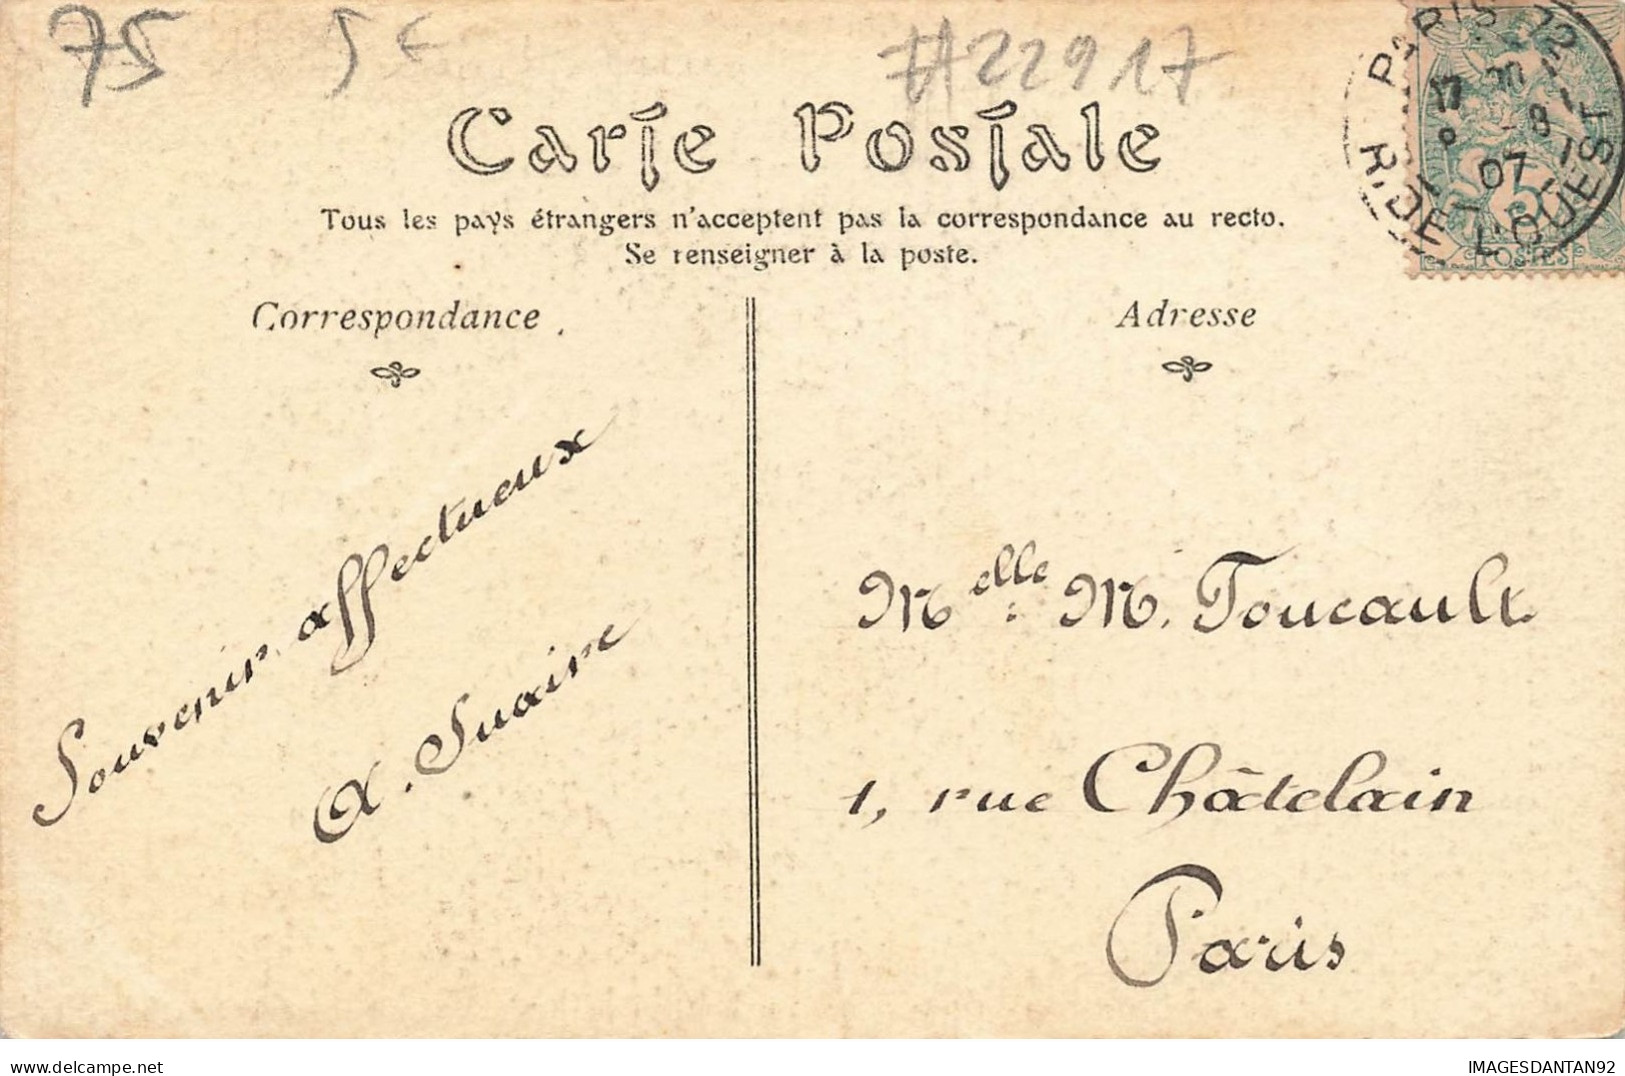 75 5€ #22917
Carte Postale
Tous les pays étrangers n'acceptent pas la correspondance au recto.
Se renseigner à la poste.
Correspondance
Souvenir affectueux
A. Suaire
Adresse
Melle M. Foucault
1, rue Châtelain
Paris
PARIS 12
R. DE L'OUEST
8 -8
07
5
POSTES
IMAGESDANTAN92